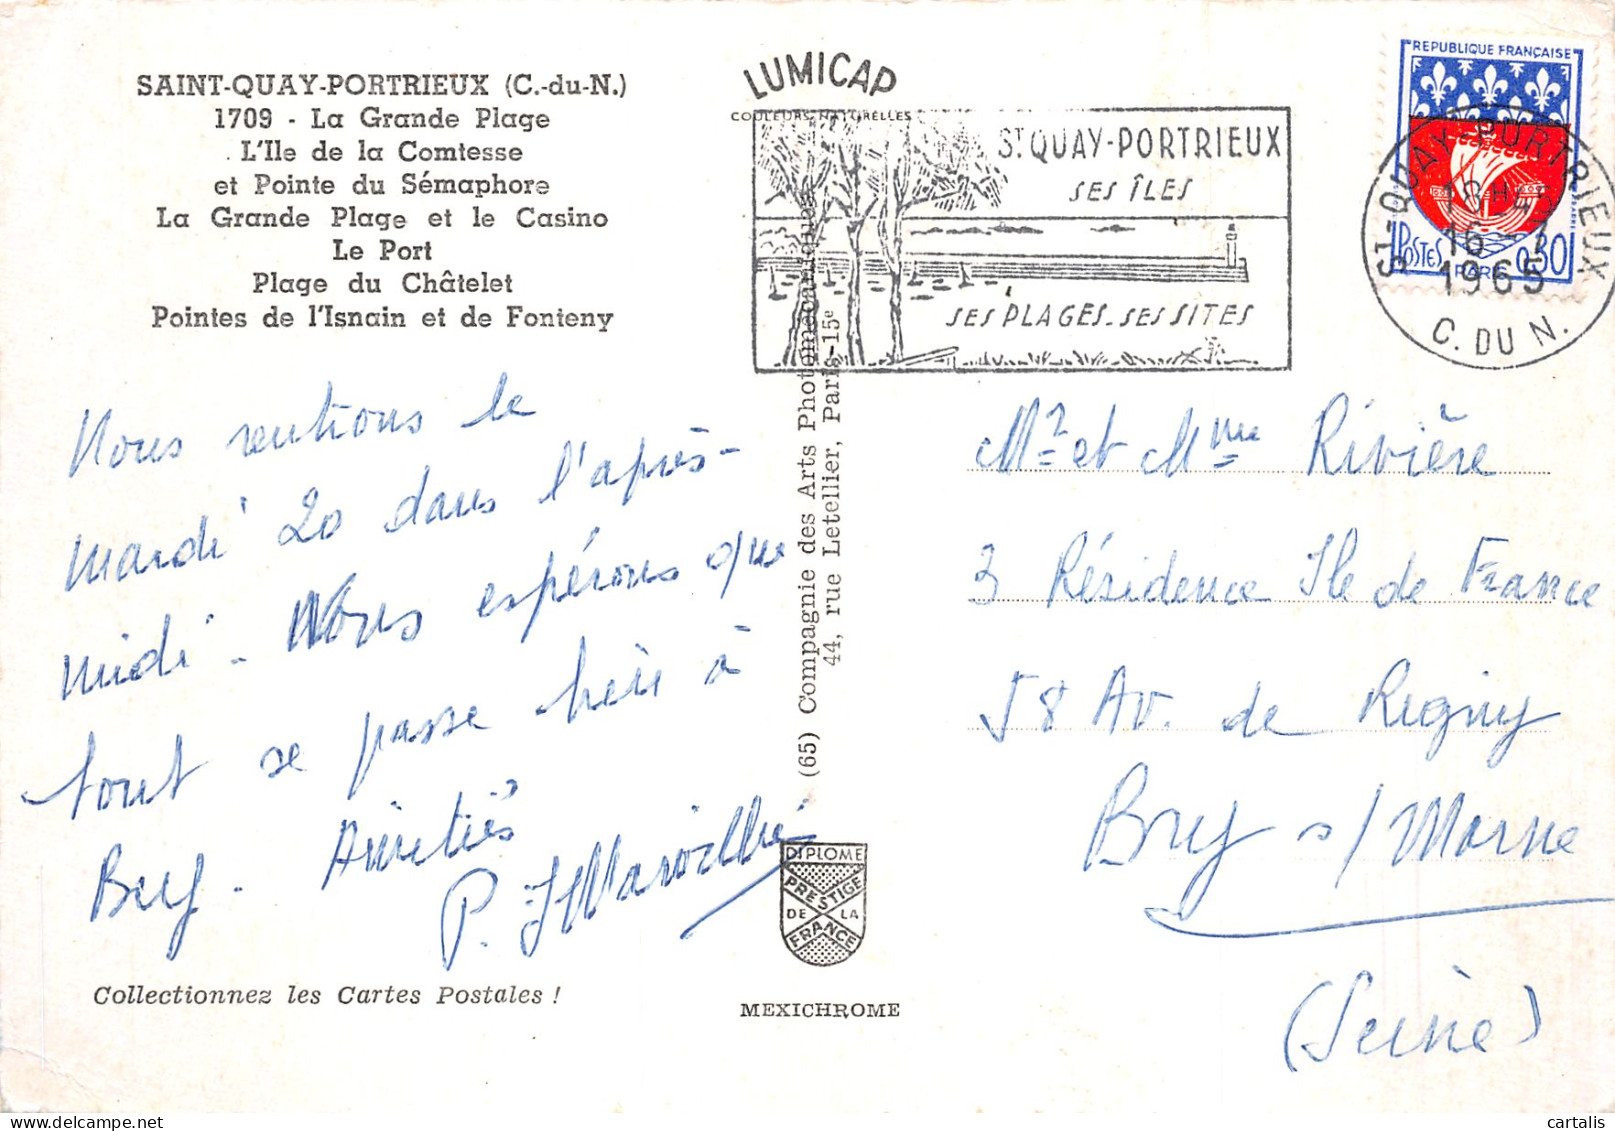 SAINT-QUAY-PORTRIEUX (C.-du-N.)
1709 - La Grande Plage
L'Ile de la Comtesse
et Pointe du Sémaphore
La Grande Plage et le Casino
Le Port
Plage du Châtelet
Pointes de l'Isnain et de Fonteny
Nous rentrons le
mardi 20 dans l'après-
midi - Nous espérons que
tout se passe bien à
Bry - Amitiés
P.
Collectionnez les Cartes Postales !
LUMICAP
COULEURS NATURELLES
ST QUAY-PORTRIEUX
SES ÎLES
SES PLAGES - SES SITES
(65) Compagnie des Arts Photomécaniques
44, rue Letellier, Paris-15e
DIPLOME
PRESTIGE
DE LA
FRANCE
MEXICHROME
REPUBLIQUE FRANÇAISE
POSTES
PARIS
0,30
ST-QUAY-PORTRIEUX
16 -7
1965
C. DU N.
Mr et Mme Rivière
3 Résidence Ile de France
58 Av. de Rigny
Bry s/ Marne
(Seine)
cartalis